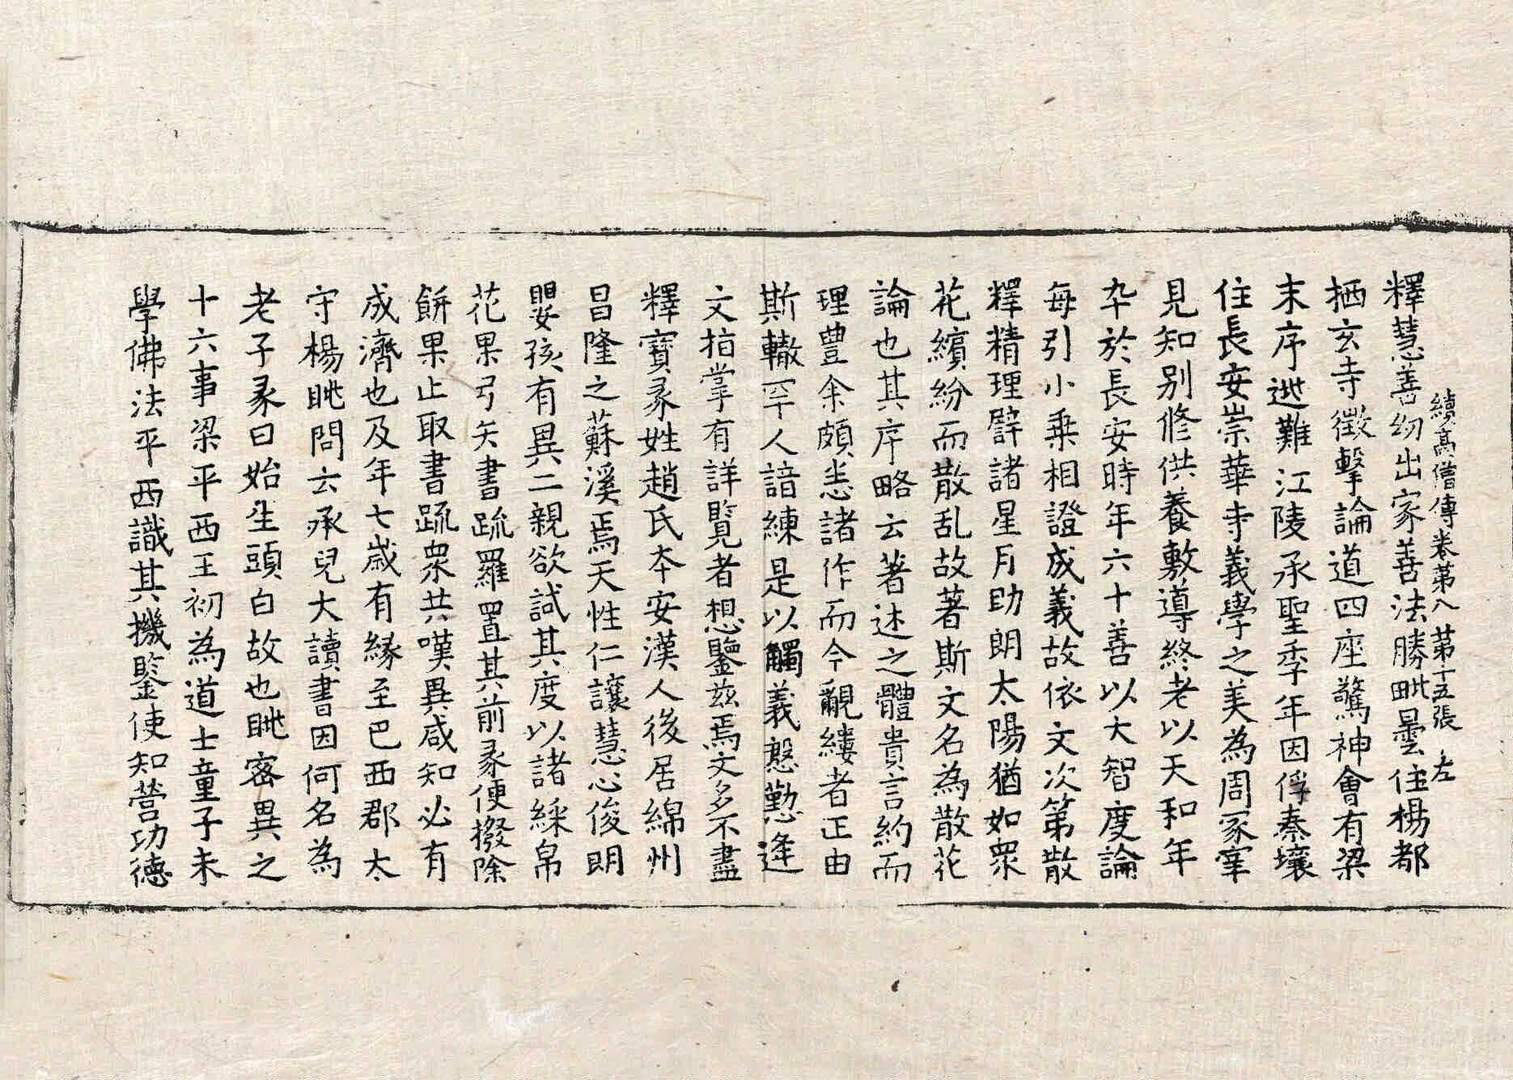 續高僧傳卷第八 第十五張 左
釋慧善幼出家善法勝毗曇住楊都
栖玄寺徵擊論道四座驚神會有梁
末序逃難江陵承聖季年因俘秦壤
住長安崇華寺義學之美為周冢宰
見知別修供養敷導終老以天和年
卒於長安時年六十善以大智度論
每引小乘相證成義故依文次第散
釋精理譬諸星月助朗太陽猶如衆
花繽紛而散乱故著斯文名為散花
論也其序略云著述之體貴言約而
理豊余頗悉諸作而今覼縷者正由
斯轍罕人諳練是以觸義慇懃逢
文指掌有詳覽者想鑒兹焉文多不盡
釋寶彖姓趙氏夲安漢人後居綿州
昌隆之蘇溪焉天性仁讓慧心俊朗
嬰孩有異二親欲試其度以諸綵帛
花果弓矢書䟽羅置其前彖便撥除
餅果止取書䟽衆共嘆異咸知必有
成濟也及年七歲有緣至巴西郡太
守楊眺問云承兒大讀書因何名為
老子彖曰始生頭白故也眺密異之
十六事梁平西王初為道士童子未
學佛法平西識其機鋻使知營功德